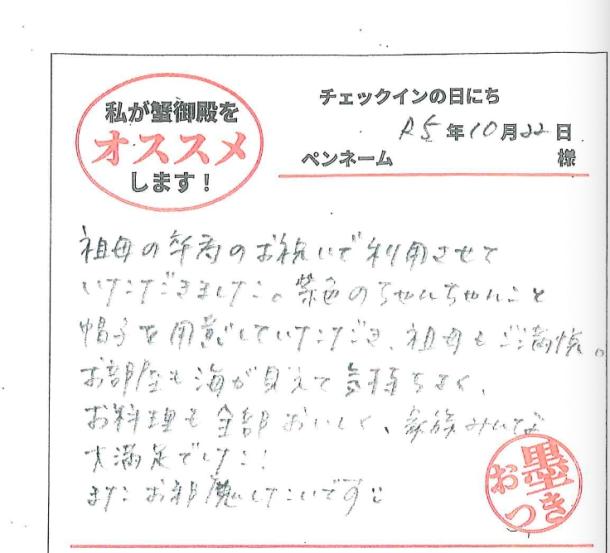 私が蟹御殿を
オススメ
します！
チェックインの日にち
R5年10月22日
ペンネーム 様
祖母の卒寿のお祝いで利用させて
いただきました。紫色のちゃんちゃんこと
帽子を用意していただき、祖母もご満悦。
お部屋も海が見えて気持ちよく、
お料理も全部おいしく、家族みんな
大満足でした!!
またお邪魔したいです
お墨つき